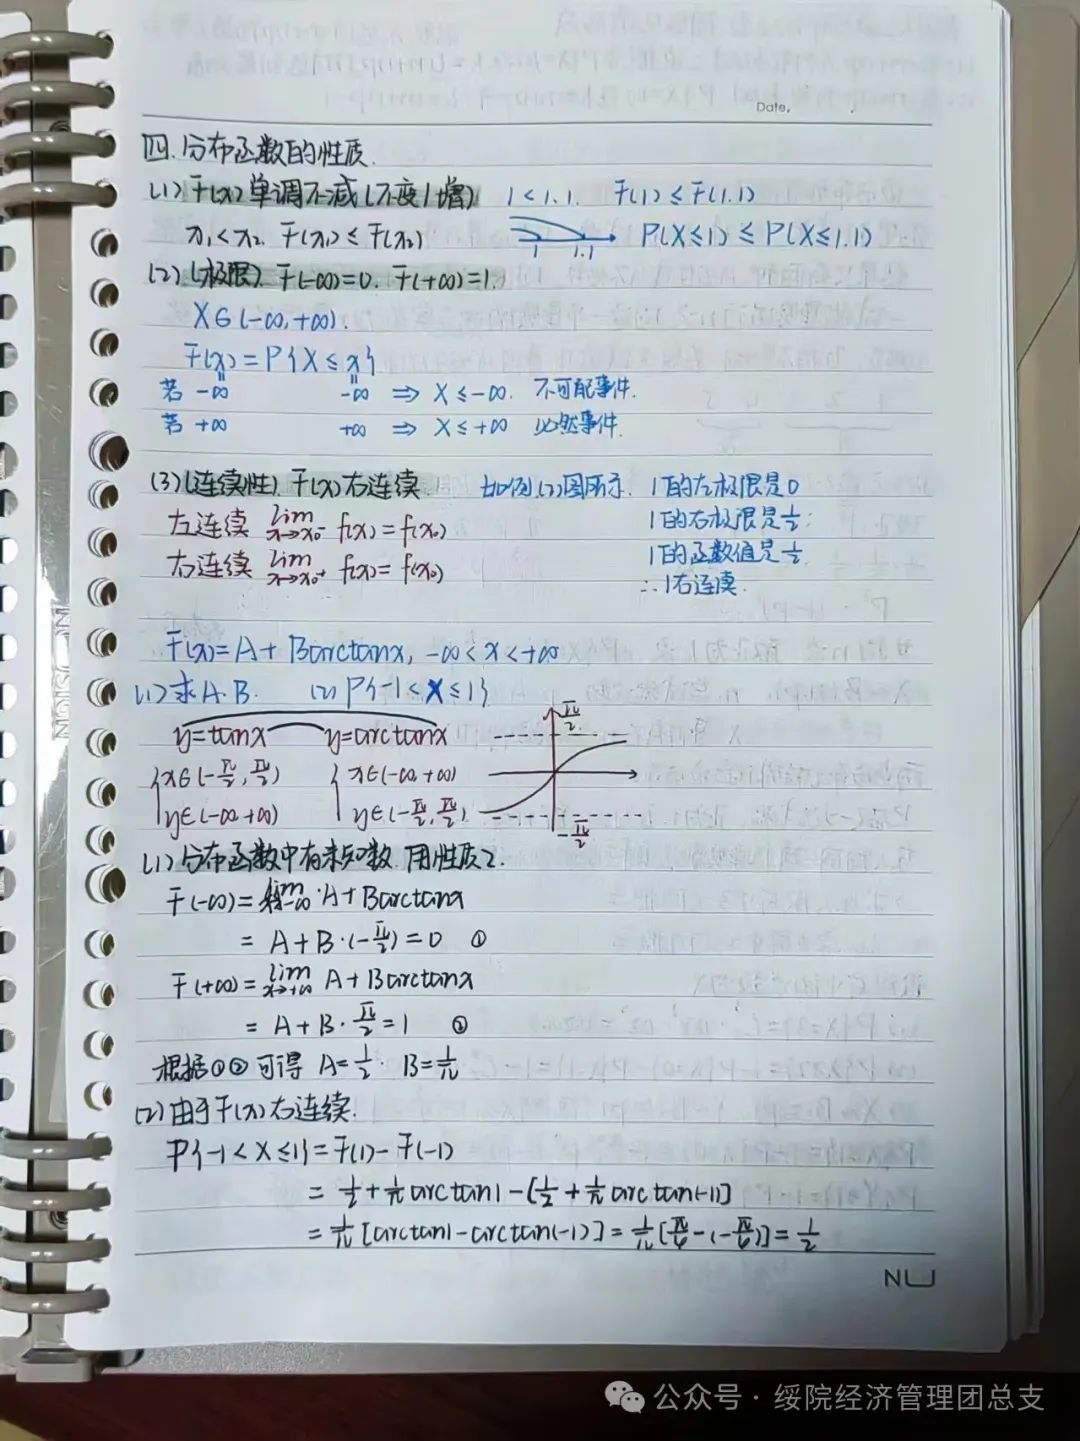 Date.
四.分布函数的性质.
(1) F(x)单调不减(不变/增) 1<1.1. F(1)≤F(1.1)
x₁<x₂. F(x₁)≤F(x₂) 1 1.1 P(X≤1)≤P(X≤1.1)
(2)(极限). F(-∞)=0. F(+∞)=1.
X∈(-∞,+∞).
F(x)=P{X≤x}
若 -∞ -∞ ⇒ X≤-∞. 不可能事件.
若 +∞ +∞ ⇒ X≤+∞ 必然事件.
(3)(连续性). F(x)右连续. 如例(2)图所示. 1的左极限是0
左连续 lim x→x₀⁻ f(x)=f(x₀) 1的右极限是½:
1的函数值是½.
右连续 lim x→x₀⁺ f(x)=f(x₀) ∴1右连续.
F(x)=A+Barctanx, -∞<x<+∞
(1)求A.B. (2)P{-1<X≤1}
y=tanx y=arctanx π/2
x∈(-π/2,π/2) x∈(-∞,+∞)
y∈(-∞,+∞) y∈(-π/2,π/2). -π/2
(1)分布函数中有未知数,用性质2.
F(-∞)=lim x→-∞ A+Barctanx
= A+B·(-π/2)=0 ①
F(+∞)=lim x→+∞ A+Barctanx
= A+B·π/2=1 ②
根据①②可得 A=½. B=1/π
(2)由于F(x)右连续.
P{-1<X≤1}=F(1)-F(-1)
= ½+1/π arctan1-[½+1/π arctan(-1)]
= 1/π[arctan1-arctan(-1)]=1/π[π/4-(-π/4)]=½
NU
公众号·绥院经济管理团总支